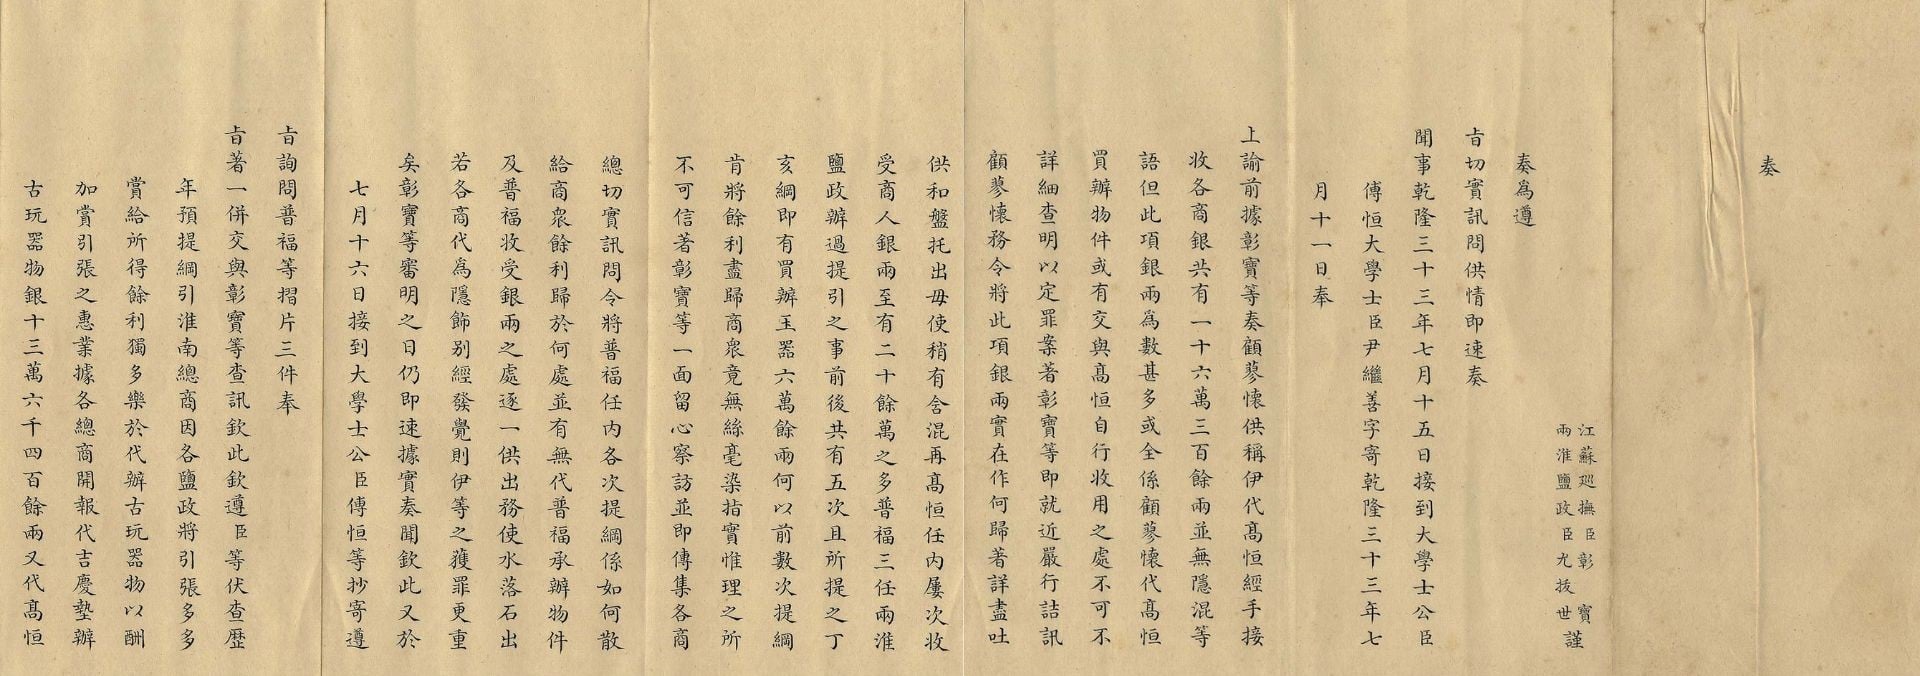 奏
江蘇巡撫臣彰寶
兩淮鹽政臣尤拔世
謹
奏為遵
旨切實訊問供情即速奏
聞事乾隆三十三年七月十五日接到大學士公臣
傅恒大學士臣尹繼善字寄乾隆三十三年七
月十一日奉
上諭前據彰寶等奏顧蓼懷供稱伊代高恒經手接
收各商銀共有一十六萬三百餘兩並無隱混等
語但此項銀兩為數甚多或全係顧蓼懷代高恒
買辦物件或有交與高恒自行收用之處不可不
詳細查明以定罪案著彰寶等即就近嚴行詰訊
顧蓼懷務令將此項銀兩實在作何歸著詳盡吐
供和盤托出毋使稍有含混再高恒任內屢次收
受商人銀兩至有二十餘萬之多普福三任兩淮
鹽政辦過提引之事前後共有五次且所提之丁
亥綱即有買辦玉器六萬餘兩何以前數次提綱
肯將餘利盡歸商衆竟無絲毫染指實惟理之所
不可信著彰寶等一面留心察訪並即傳集各商
總切實訊問令將普福任內各次提綱係如何散
給商衆餘利歸於何處並有無代普福承辦物件
及普福收受銀兩之處逐一供出務使水落石出
若各商代為隱飾別經發覺則伊等之獲罪更重
矣彰寶等審明之日仍即速據實奏聞欽此又於
七月十六日接到大學士公臣傅恒等抄寄遵
旨詢問普福等摺片三件奉
旨著一併交與彰寶等查訊欽此欽遵臣等伏查歷
年預提綱引淮南總商因各鹽政將引張多多
賞給所得餘利獨多樂於代辦古玩器物以酬
加賞引張之惠業據各總商開報代吉慶墊辦
古玩器物銀十三萬六千四百餘兩又代高恒